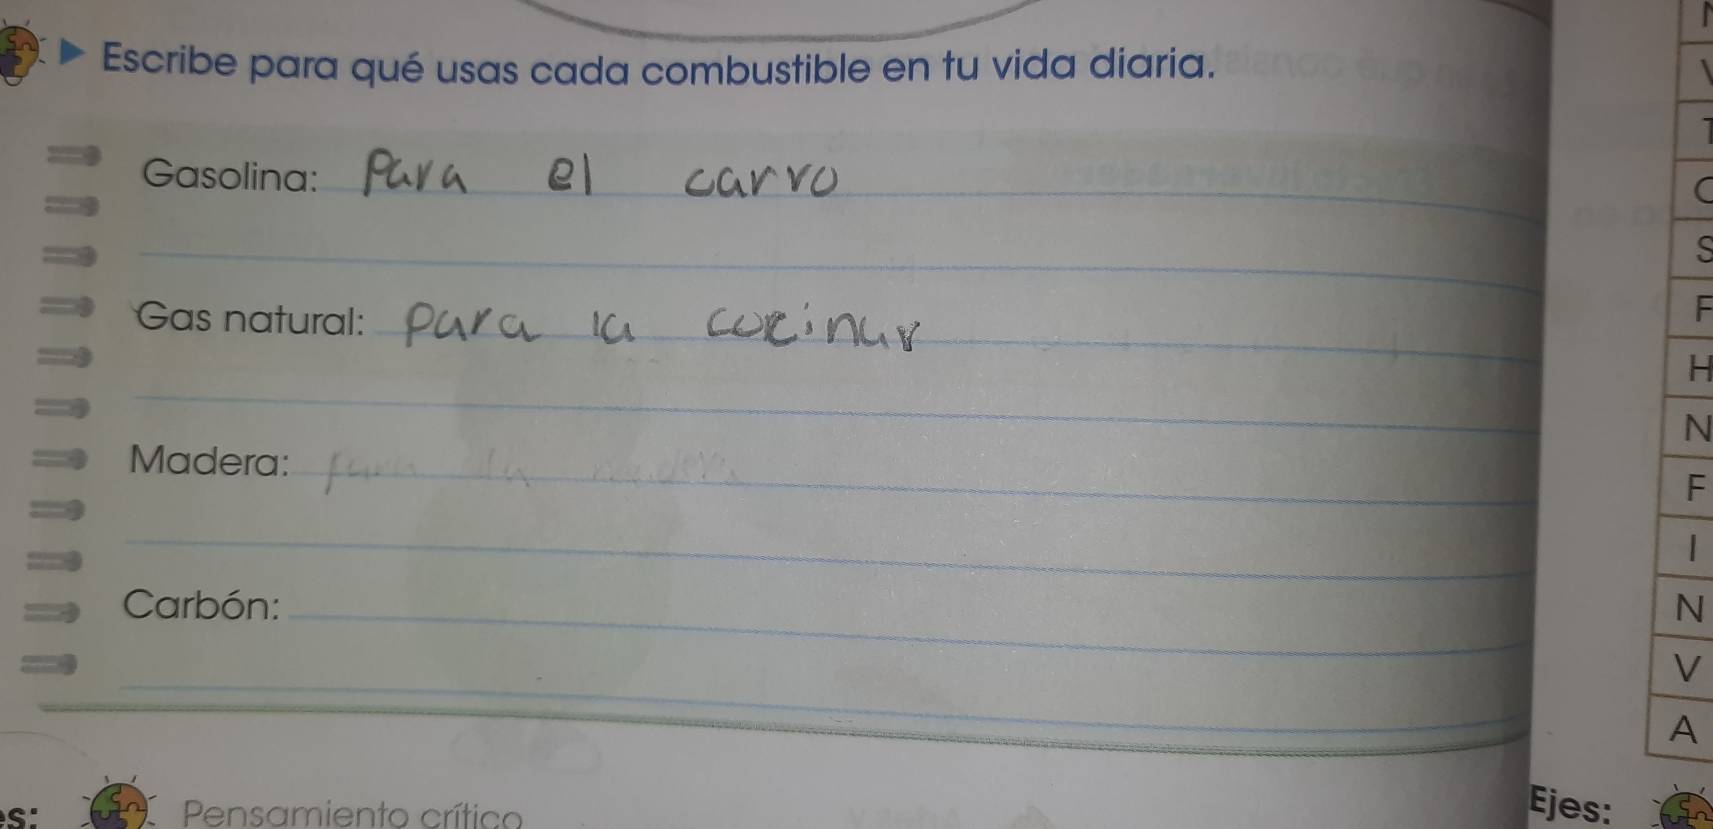 Escribe para qué usas cada combustible en tu vida diaria.
Gasolina: Para el carro
Gas natural: para la cocinar
Madera:
Carbón:
es: Pensamiento crítico
V
T
C
S
F
H
N
F
I
N
V
A
Ejes: